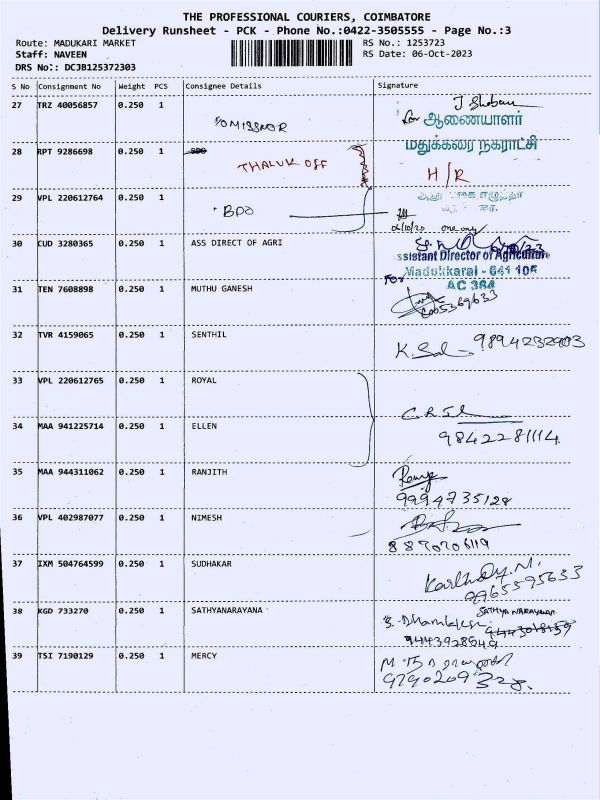 THE PROFESSIONAL COURIERS, COIMBATORE
Delivery Runsheet - PCK - Phone No.:0422-3505555 - Page No.:3
Route: MADUKARI MARKET RS No.: 1253723
Staff: NAVEEN RS Date: 06-Oct-2023
DRS No:: DCJB125372303
S No Consignment No Weight PCS Consignee Details Signature
27 TRZ 40056857 0.250 1
COMISSNOR
for ஆணையாளர்
மதுக்கரை நகராட்சி
28 RPT 9286698 0.250 1 BDO
THALUK OFF H/R
29 VPL 220612764 0.250 1
BDO
one only
30 CUD 3280365 0.250 1 ASS DIRECT OF AGRI
Assistant Director of Agriculture
Madukkarai - 641 105
AC 364
For
31 TEN 7608898 0.250 1 MUTHU GANESH
32 TVR 4159065 0.250 1 SENTHIL
33 VPL 220612765 0.250 1 ROYAL
34 MAA 941225714 0.250 1 ELLEN
9842281114
35 MAA 944311062 0.250 1 RANJITH
9994735128
36 VPL 402987077 0.250 1 NIMESH
8870706119
37 IXM 504764599 0.250 1 SUDHAKAR
9965595633
38 KGD 733270 0.250 1 SATHYANARAYANA
SATHYA NARAYANAN
9443928549
39 TSI 7190129 0.250 1 MERCY
9790209328